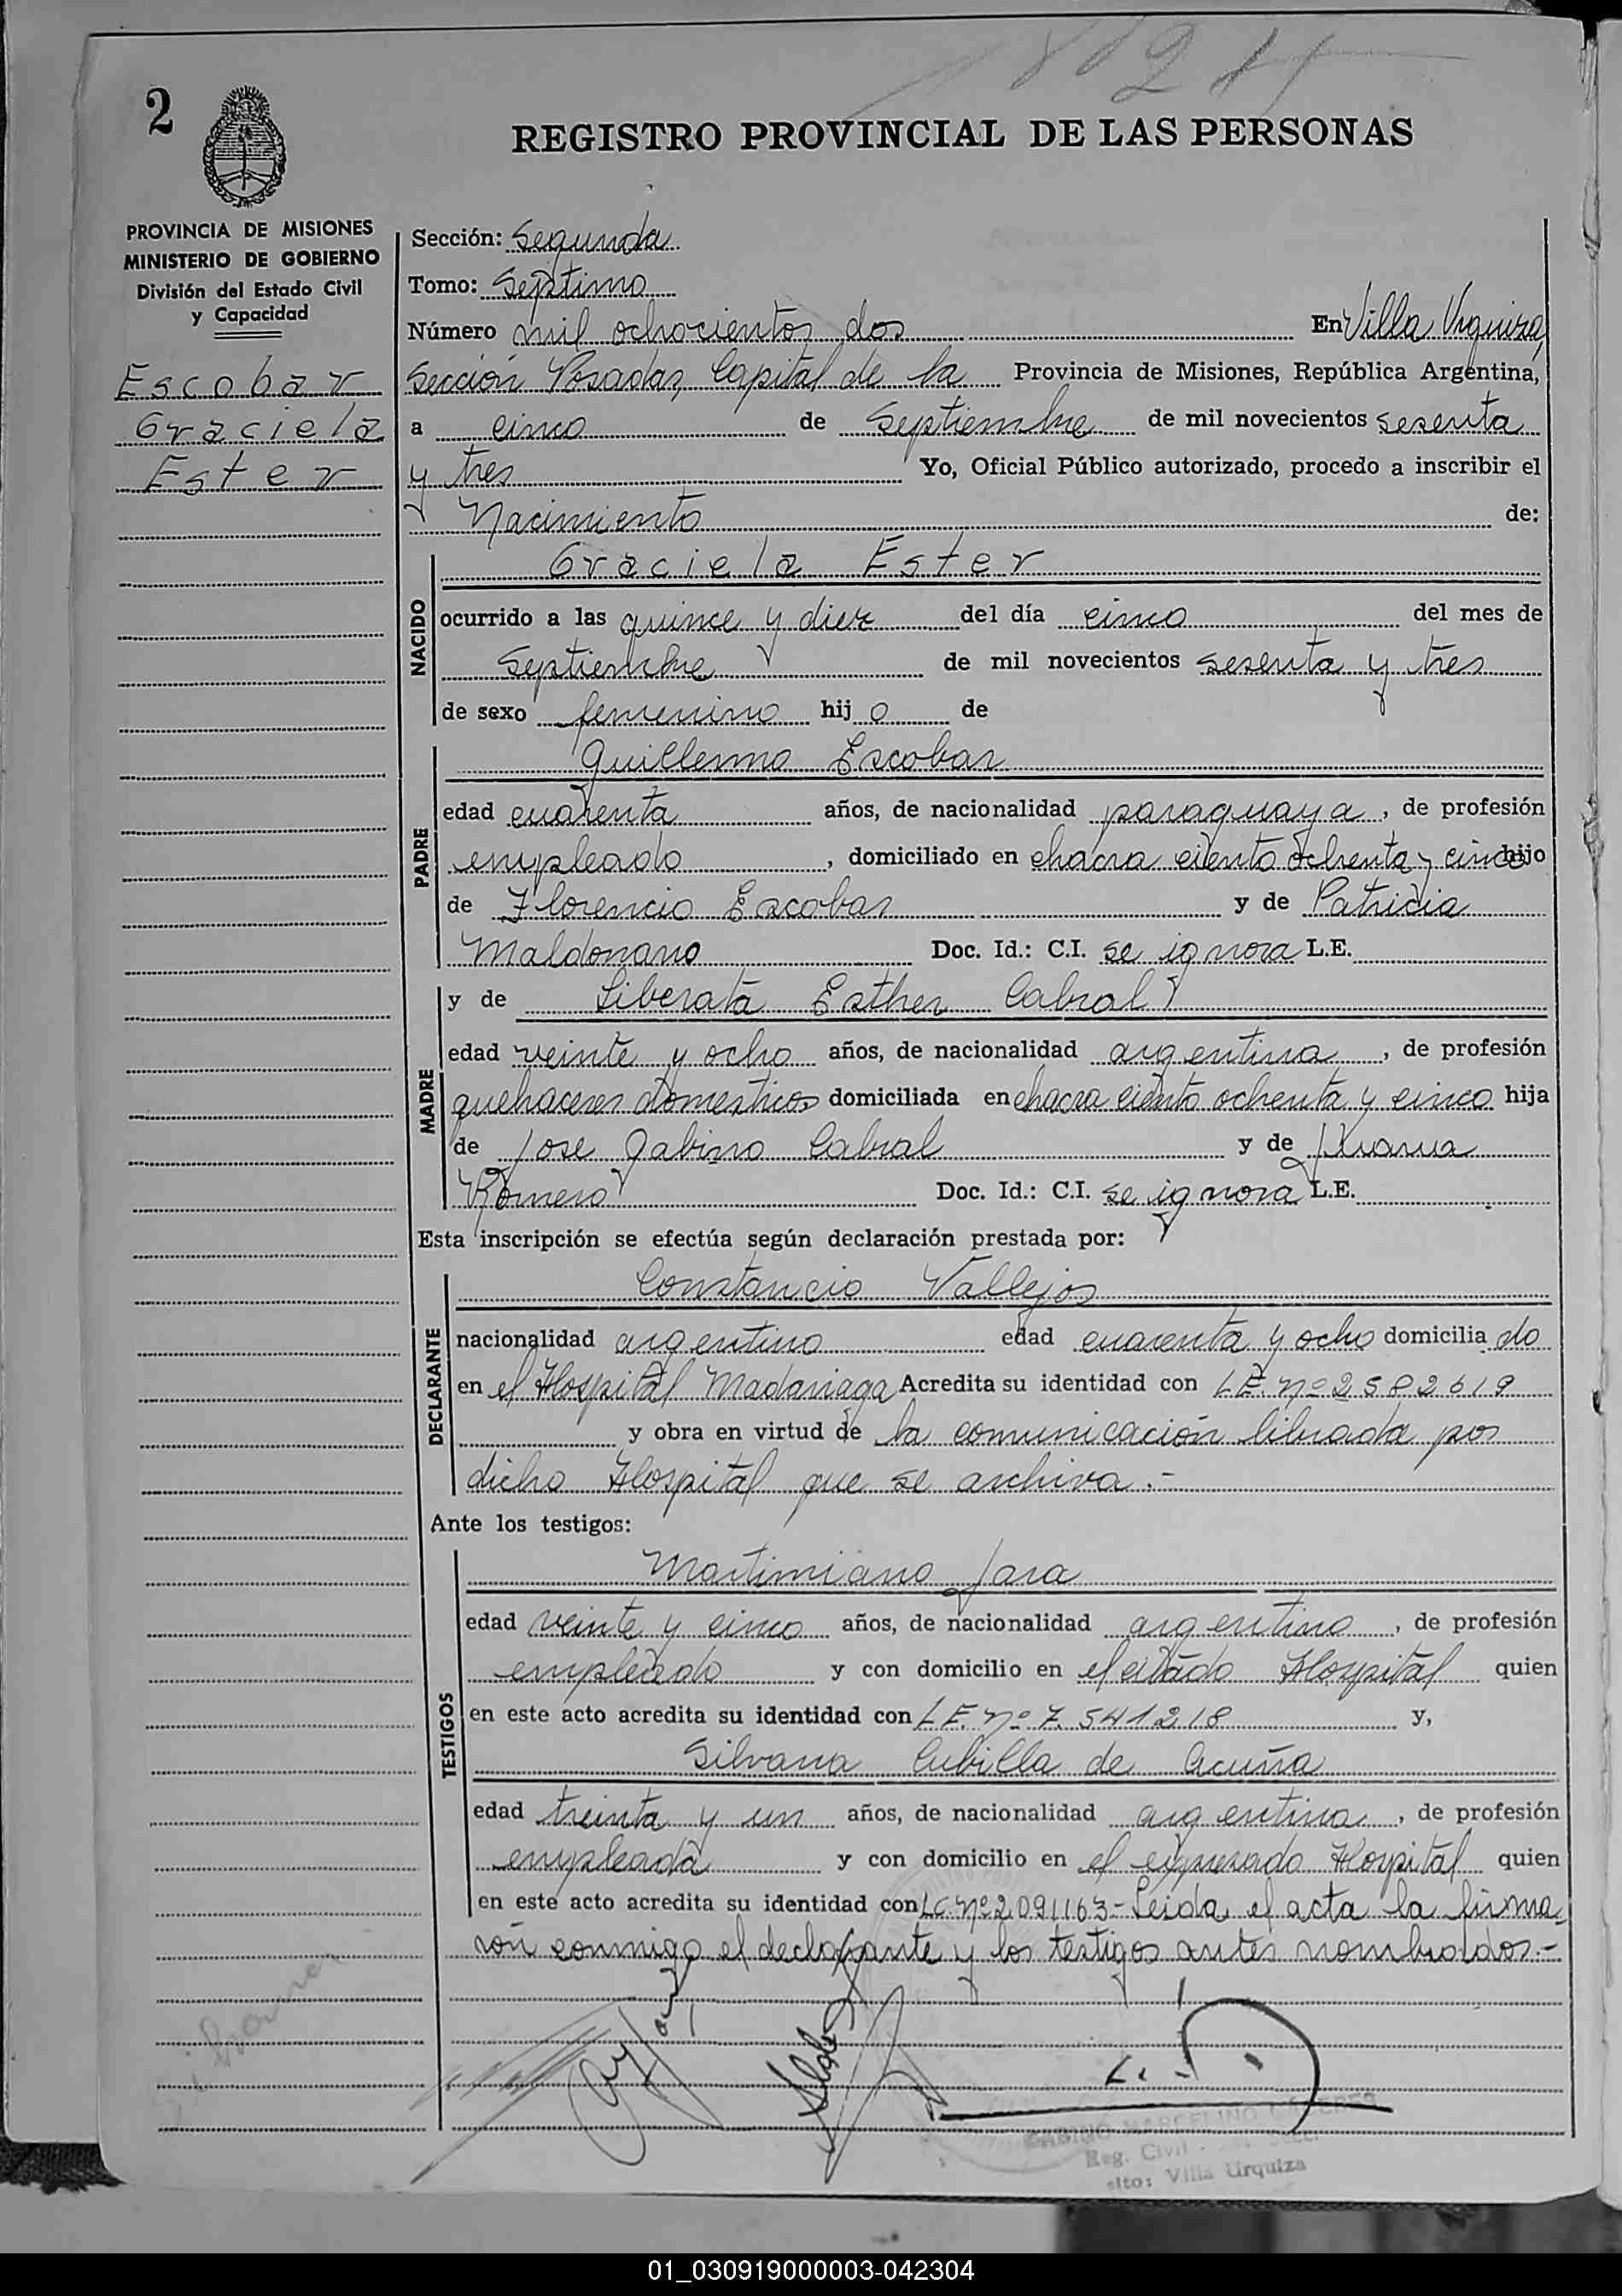 2
REGISTRO PROVINCIAL DE LAS PERSONAS
PROVINCIA DE MISIONES
MINISTERIO DE GOBIERNO
División del Estado Civil
y Capacidad
Escobar
Graciela
Ester
Sección: Segunda
Tomo: Septimo
Número mil ochocientos dos En Villa Urquiza,
Sección Posadas, Capital de la Provincia de Misiones, República Argentina,
a cinco de Septiembre de mil novecientos sesenta
y tres Yo, Oficial Público autorizado, procedo a inscribir el
Nacimiento de:
NACIDO
Graciela Ester
ocurrido a las quince y diez del día cinco del mes de
Septiembre de mil novecientos sesenta y tres
de sexo femenino hij o de
PADRE
Guillermo Escobar
edad cuarenta años, de nacionalidad paraguaya, de profesión
empleado, domiciliado en chacra ciento ochenta y cinco hijo
de Florencio Escobar y de Patricia
Maldonano Doc. Id.: C.I. se ignora L.E.
MADRE
y de Liberata Esther Cabral
edad veinte y ocho años, de nacionalidad argentina, de profesión
quehaceres domesticos domiciliada en chacra ciento ochenta y cinco hija
de Jose Gabino Cabral y de Juana
Romero Doc. Id.: C.I. se ignora L.E.
Esta inscripción se efectúa según declaración prestada por:
DECLARANTE
Constancio Vallejos
nacionalidad argentino edad cuarenta y ocho domicilia do
en el Hospital Madariaga Acredita su identidad con L.E. nº 2582619
y obra en virtud de la comunicación librada por
dicho Hospital que se archiva.-
Ante los testigos:
TESTIGOS
Martimiano Jara
edad veinte y cinco años, de nacionalidad argentino, de profesión
empleado y con domicilio en el citado Hospital quien
en este acto acredita su identidad con L.E. nº 7.541218 y,
Silvana Cubilla de Acuña
edad treinta y un años, de nacionalidad argentina, de profesión
empleada y con domicilio en el expresado Hospital quien
en este acto acredita su identidad con L.C. nº 2.091163 - Leida el acta la firma-
rón conmigo el declarante y los testigos antes nombrados.-
GABINO MARCELINO CACERES
Reg. Civil
Villa Urquiza
01_030919000003-042304